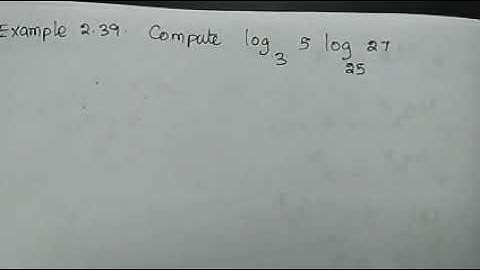 Example 2.39. Compute log₃ 5 log₂₅ 27